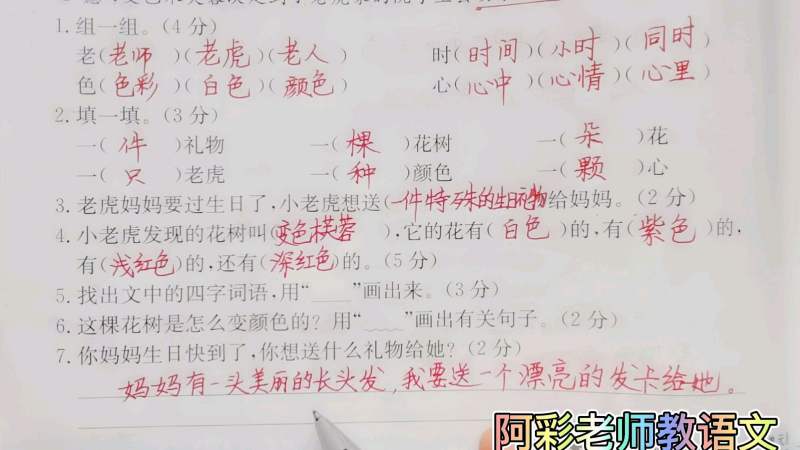 1.组一组。(4分)
老(老师)(老虎)(老人) 时(时间)(小时)(同时)
色(色彩)(白色)(颜色) 心(心中)(心情)(心里)
2.填一填。(3分)
一(件)礼物 一(棵)花树 一(朵)花
一(只)老虎 一(种)颜色 一(颗)心
3.老虎妈妈要过生日了,小老虎想送(一件特殊的生日礼物给妈妈。(2分)
4.小老虎发现的花树叫(变色芙蓉),它的花有(白色)的,有(紫色)的,
有(浅红色)的,还有(深红色)的。(5分)
5.找出文中的四字词语,用“____”画出来。(3分)
6.这棵花树是怎么变颜色的?用“﹏﹏”画出有关句子。(2分)
7.你妈妈生日快到了,你想送什么礼物给她?(2分)
妈妈有一头美丽的长头发,我要送一个漂亮的发卡给她。
阿彩老师教语文